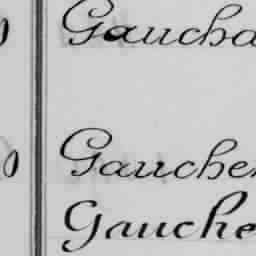 Gaucha
Gaucher
Gauche